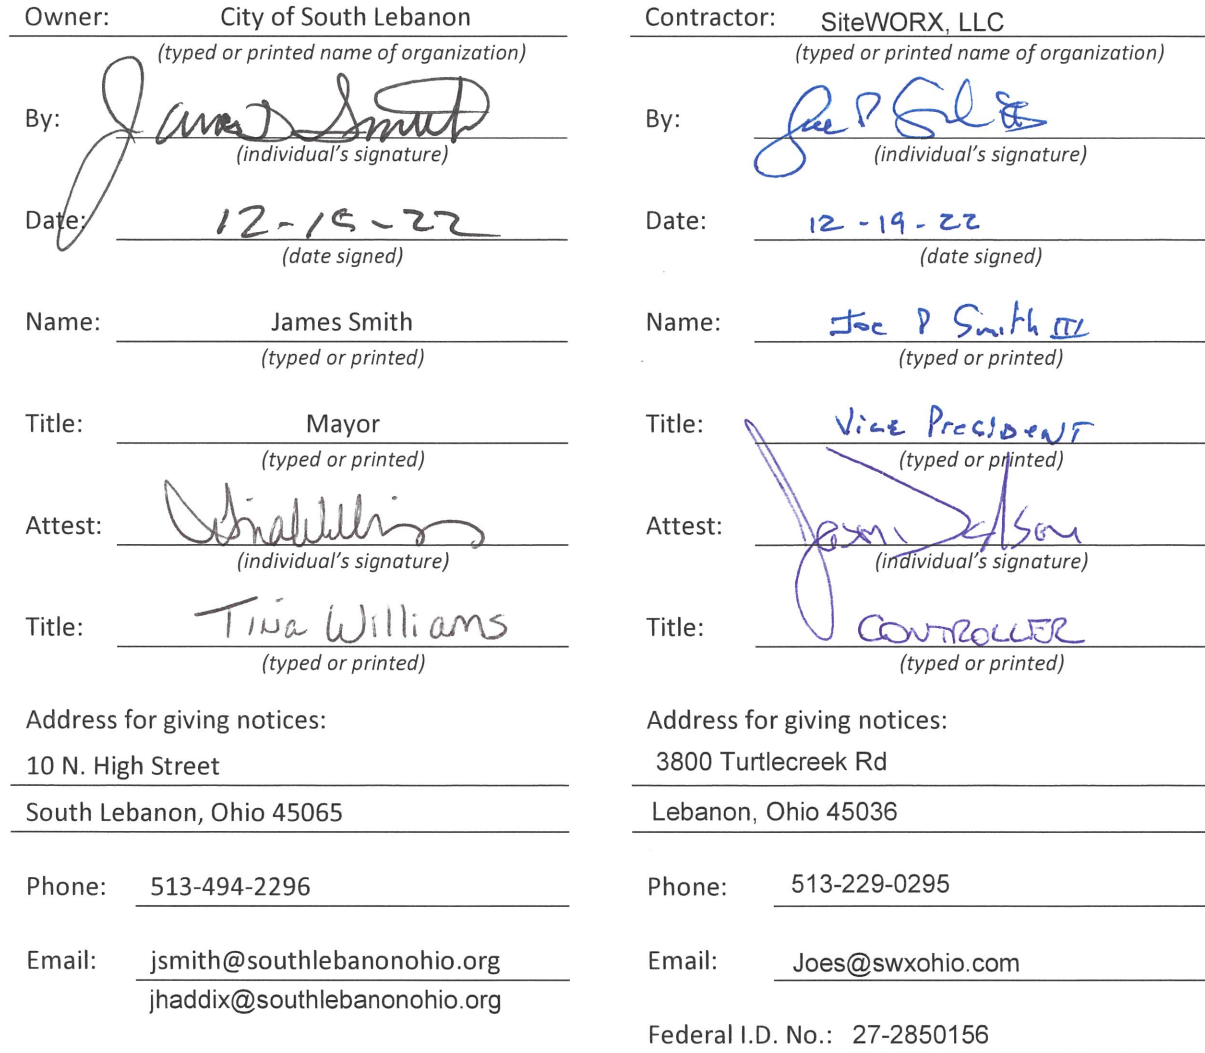 Owner: City of South Lebanon
(typed or printed name of organization)
By: James D Smith
(individual's signature)
Date: 12-15-22
(date signed)
Name: James Smith
(typed or printed)
Title: Mayor
(typed or printed)
Attest: Tina Williams
(individual's signature)
Title: Tina Williams
(typed or printed)
Address for giving notices:
10 N. High Street
South Lebanon, Ohio 45065
Phone: 513-494-2296
Email: jsmith@southlebanonohio.org
jhaddix@southlebanonohio.org
Contractor: SiteWORX, LLC
(typed or printed name of organization)
By: Joe P
(individual's signature)
Date: 12-19-22
(date signed)
Name: Joe P Smith III
(typed or printed)
Title: Vice President
(typed or printed)
Attest: Jason
(individual's signature)
Title: CONTROLLER
(typed or printed)
Address for giving notices:
3800 Turtlecreek Rd
Lebanon, Ohio 45036
Phone: 513-229-0295
Email: Joes@swxohio.com
Federal I.D. No.: 27-2850156